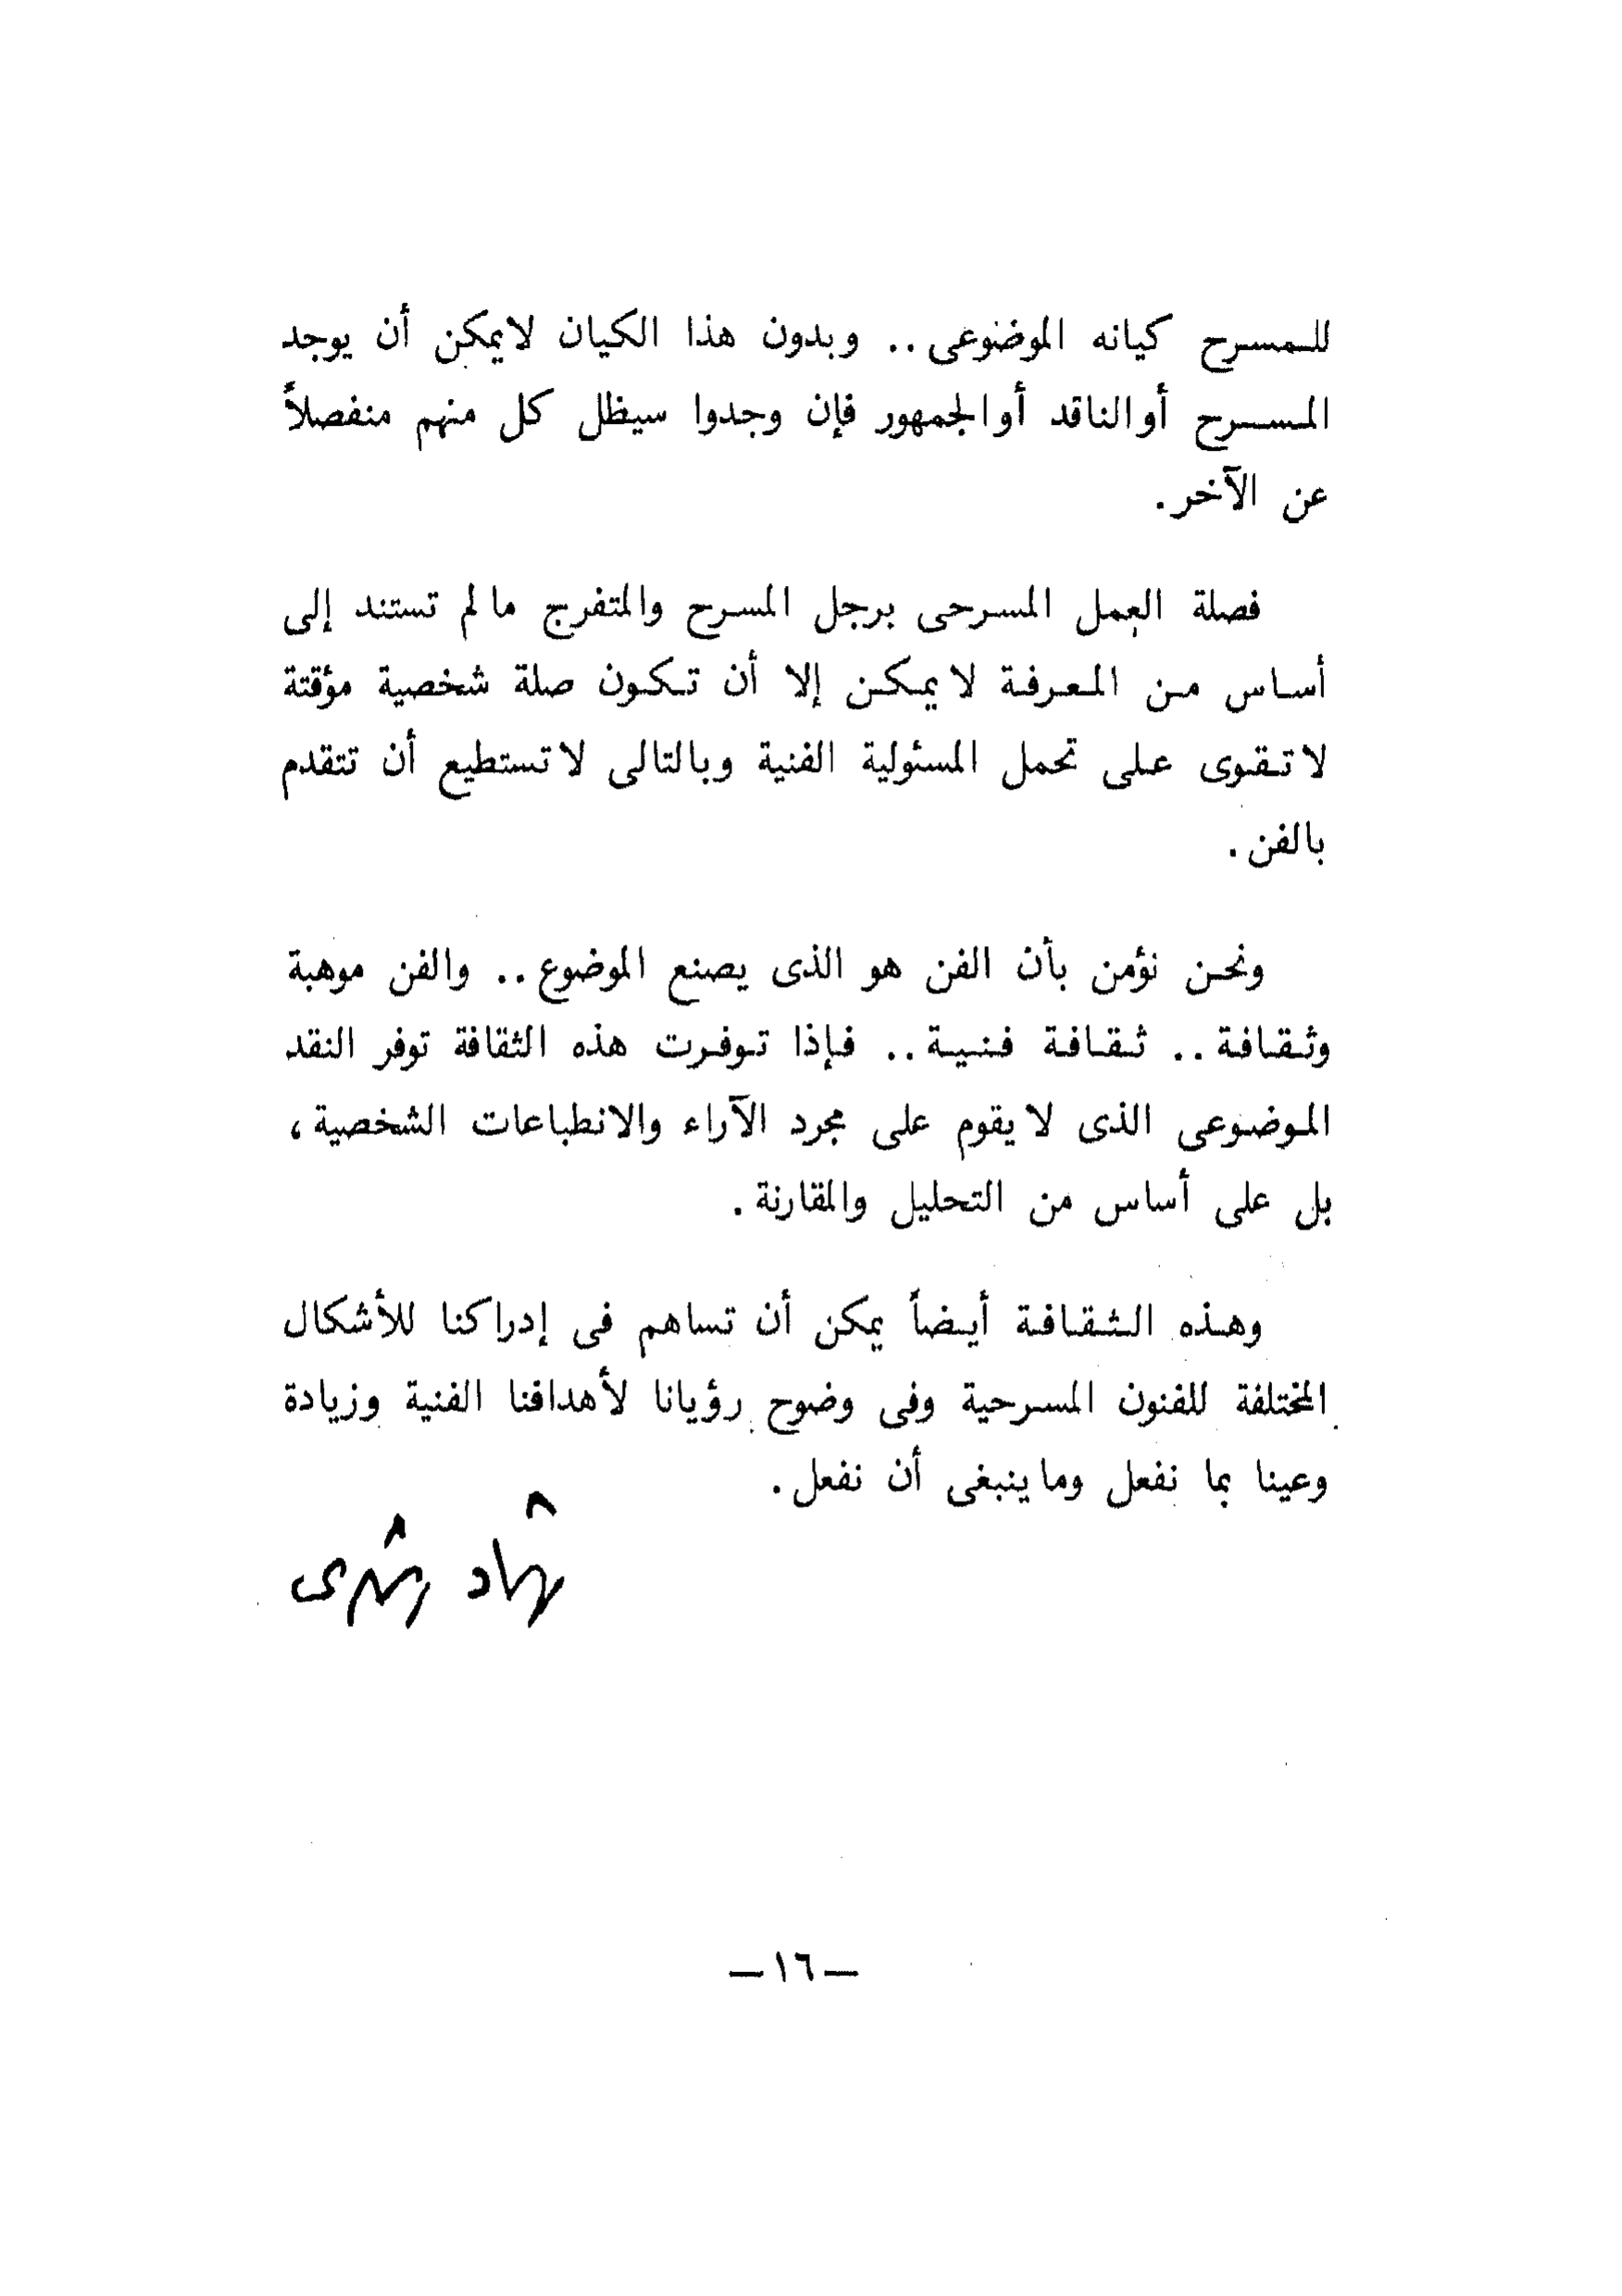 للمسرح كيانه الموضوعى .. وبدون هذا الكيان لايمكن أن يوجد
المسرح أو الناقد أو الجمهور فإن وجدوا سيظل كل منهم منفصلاً
عن الآخر .
فصلة العمل المسرحى برجل المسرح والمتفرج مالم تستند إلى
أساس من المعرفة لايمكن إلا أن تكون صلة شخصية مؤقتة
لاتقوى على تحمل المسئولية الفنية وبالتالى لاتستطيع أن تتقدم
بالفن .
ونحن نؤمن بأن الفن هو الذى يصنع الموضوع .. والفن موهبة
وثقافة .. ثقافة فنية .. فإذا توفرت هذه الثقافة توفر النقد
الموضوعى الذى لايقوم على مجرد الآراء والانطباعات الشخصية ،
بل على أساس من التحليل والمقارنة .
وهذه الثقافة أيضاً يمكن أن تساهم فى إدراكنا للأشكال
المختلفة للفنون المسرحية وفى وضوح رؤيانا لأهدافنا الفنية وزيادة
وعينا بما نفعل وماينبغى أن نفعل .
رشاد رشدى
— ١٦ —